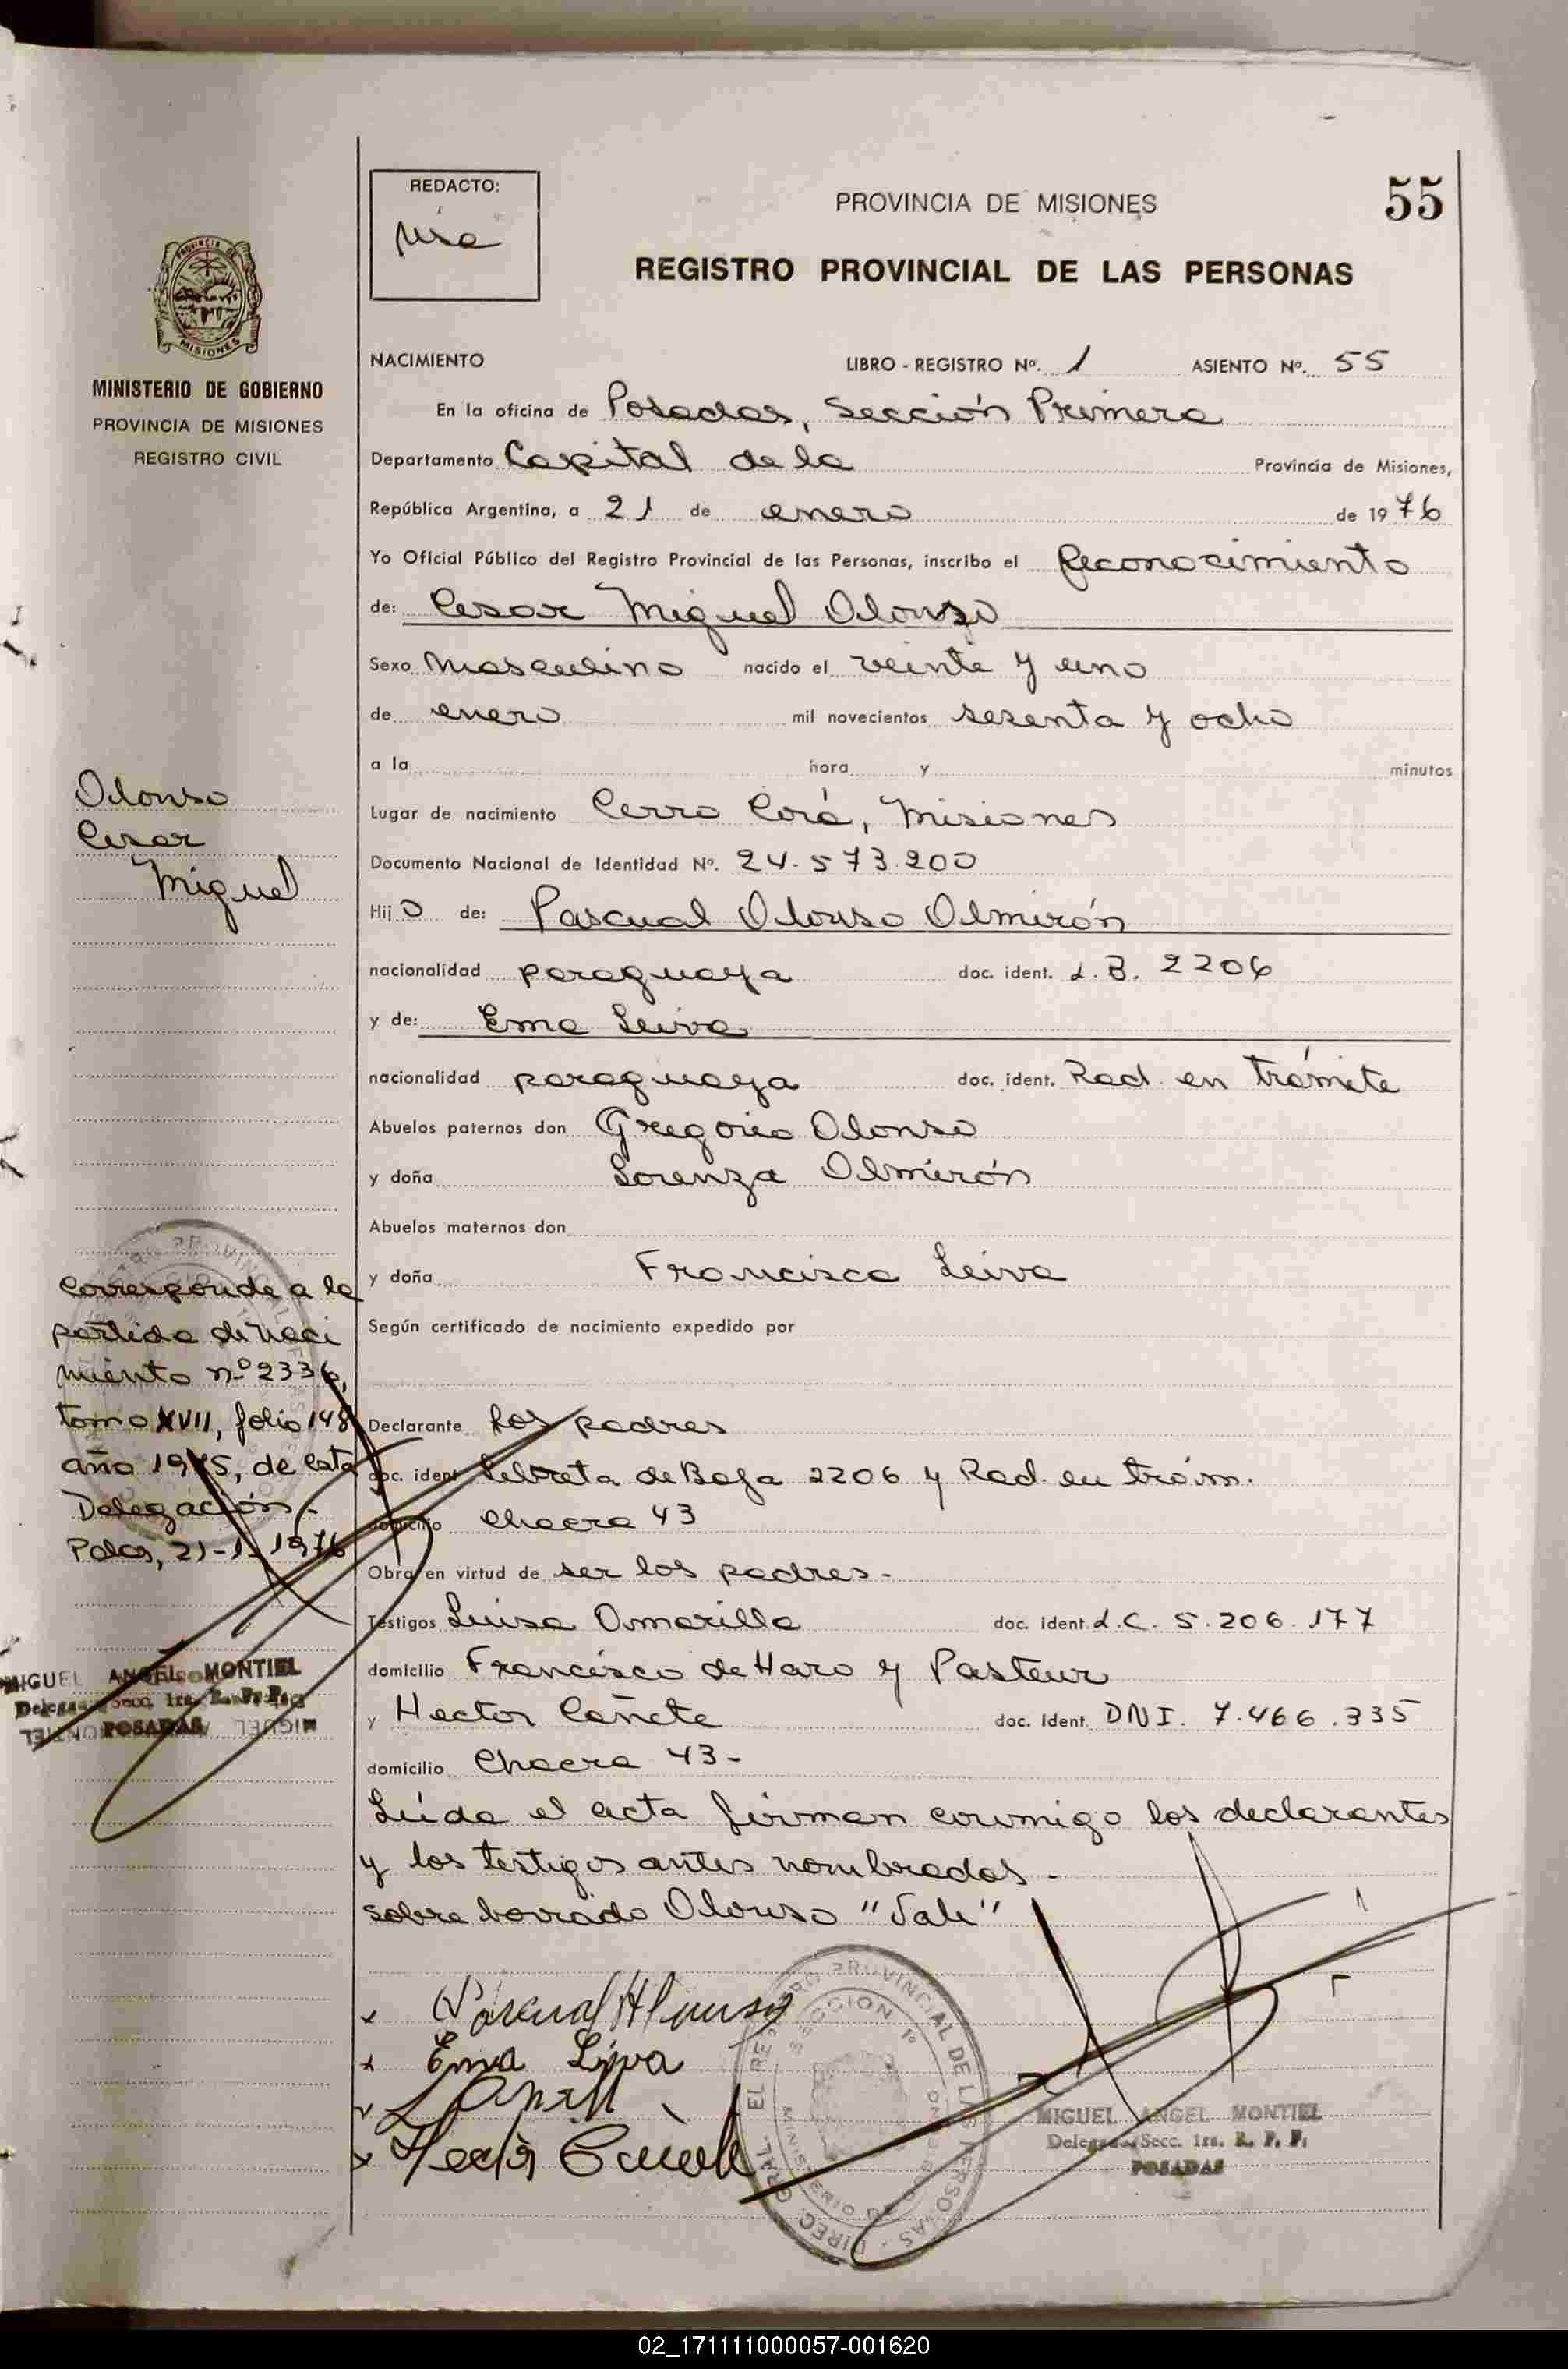 55
REDACTO:
PROVINCIA DE MISIONES
REGISTRO PROVINCIAL DE LAS PERSONAS
PROVINCIA DE
MISIONES
MINISTERIO DE GOBIERNO
PROVINCIA DE MISIONES
REGISTRO CIVIL
NACIMIENTO LIBRO - REGISTRO Nº. 1 ASIENTO Nº. 55
En la oficina de Posadas, Sección Primera
Departamento Capital de la Provincia de Misiones,
República Argentina, a 21 de enero de 1976
Yo Oficial Público del Registro Provincial de las Personas, inscribo el Reconocimiento
de: Cesar Miguel Alonso
Sexo masculino nacido el veinte y uno
de enero mil novecientos sesenta y ocho
a la hora y minutos
Lugar de nacimiento Cerro Corá, Misiones
Documento Nacional de Identidad Nº. 24.573.200
Hijo de: Pascual Alonso Almirón
nacionalidad paraguaya doc. ident. L.B. 2206
y de: Ema Leiva
nacionalidad paraguaya doc. ident. Rad. en trámite
Abuelos paternos don Gregorio Alonso
y doña Lorenza Almirón
Abuelos maternos don
y doña Francisca Leiva
Según certificado de nacimiento expedido por
Declarante Los padres
doc. ident. Libreta de Baja 2206 y Rad. en trám.
domicilio Chacra 43
Obra en virtud de ser los padres.-
Testigos Luisa Amarilla doc. ident. L.C. 5.206.177
domicilio Francisco de Haro y Pasteur
y Hector Cañete doc. ident. DNI. 7.466.335
domicilio Chacra 43-
Leída el acta firman conmigo los declarantes
y los testigos antes nombrados.-
sobre borrado Alonso "Vale"
Pascual Alonso
Ema Leiva
Alonso
Cesar
Miguel
Corresponde a la
partida de naci
miento n.º 2336,
tomo XVII, folio 148
año 1975, de esta
Delegación.-
Pdas, 21-1-1976
MIGUEL ANGEL MONTIEL
Delegado Secc. 1ra. R. P. P.
POSADAS
DIREC. GRAL. EL REGISTRO PROVINCIAL DE LAS PERSONAS
SECCION 1º
MINISTERIO DE GOBIERNO
MIGUEL ANGEL MONTIEL
Delegado Secc. 1ra. R. P. P.
POSADAS
02_171111000057-001620